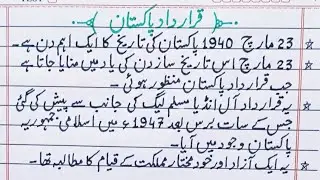 قرارداد پاکستان
23 مارچ 1940 پاکستان کی تاریخ کا ایک اہم دن ہے۔
23 مارچ اس تاریخ ساز دن کی یاد میں منایا جاتا ہے
جب قرارداد پاکستان منظور ہوئی۔
یہ قرارداد آل انڈیا مسلم لیگ کی جانب سے پیش کی گئی
جس کے سات برس بعد 1947ء میں اسلامی جمہوریہ
پاکستان وجود میں آیا۔
یہ ایک آزاد اور خود مختار مملکت کے قیام کا مطالبہ تھا۔